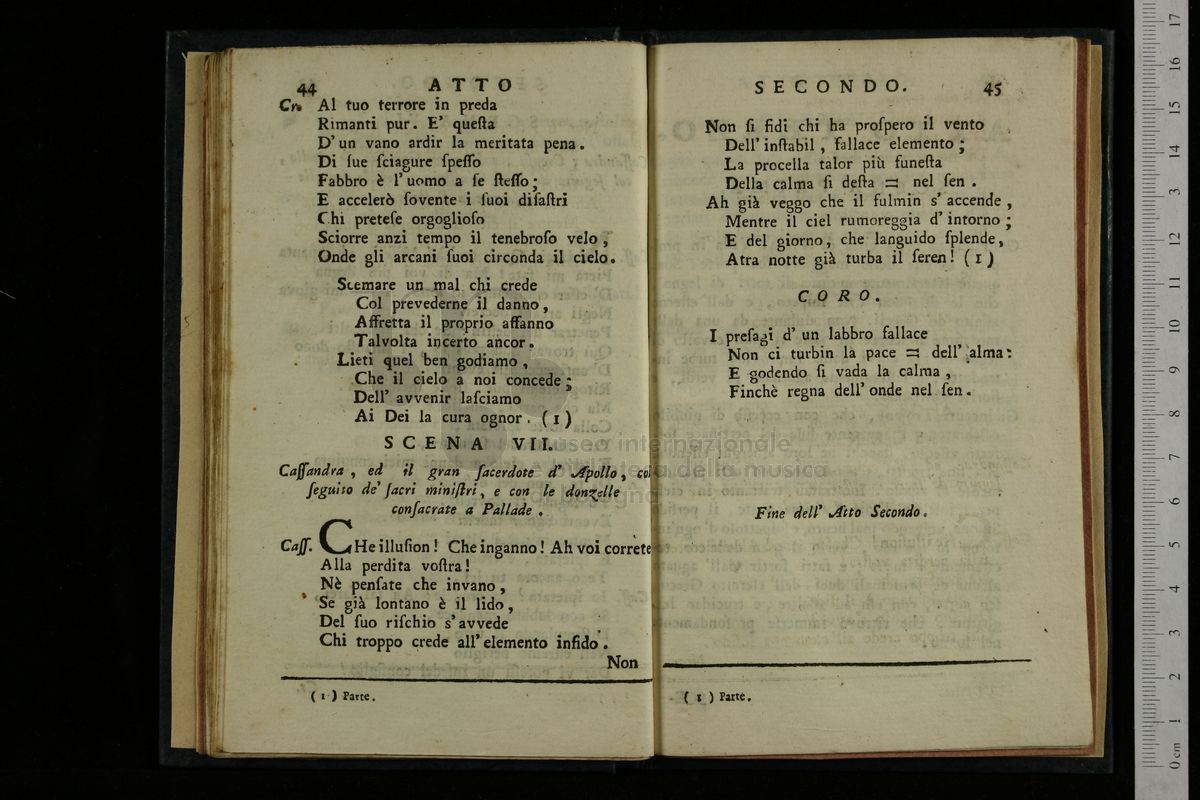 44 ATTO
Cr. Al tuo terrore in preda
Rimanti pur. E' queſta
D'un vano ardir la meritata pena.
Di ſue ſciagure ſpeſſo
Fabbro è l'uomo a ſe ſteſſo;
E accelerò ſovente i ſuoi diſaſtri
Chi preteſe orgoglioſo
Sciorre anzi tempo il tenebroſo velo,
Onde gli arcani ſuoi circonda il cielo.
Scemare un mal chi crede
Col prevederne il danno,
Affretta il proprio affanno
Talvolta incerto ancor.
Lieti quel ben godiamo,
Che il cielo a noi concede;
Dell' avvenir laſciamo
Ai Dei la cura ognor. (1)
SCENA VII.
Caſſandra, ed il gran ſacerdote d' Apollo, col
ſeguito de' ſacri miniſtri, e con le donzelle
conſacrate a Pallade.
Caſſ. CHe illuſion! Che inganno! Ah voi corrète
Alla perdita voſtra!
Nè penſate che invano,
Se già lontano è il lido,
Del ſuo riſchio s'avvede
Chi troppo crede all'elemento infido.
Non
(1) Parte.
SECONDO. 45
Non ſi fidi chi ha proſpero il vento
Dell'inſtabil, fallace elemento;
La procella talor più funeſta
Della calma ſi deſta = nel ſen.
Ah già veggo che il fulmin s'accende,
Mentre il ciel rumoreggia d'intorno;
E del giorno, che languido ſplende,
Atra notte già turba il ſeren! (1)
CORO.
I preſagi d'un labbro fallace
Non ci turbin la pace = dell' alma:
E godendo ſi vada la calma,
Finchè regna dell'onde nel ſen.
Fine dell' Atto Secondo.
(1) Parte.
museo internazionale
e biblioteca della musica
di bologna
0 cm 1 2 3 4 5 6 7 8 9 10 11 12 13 14 15 16 17